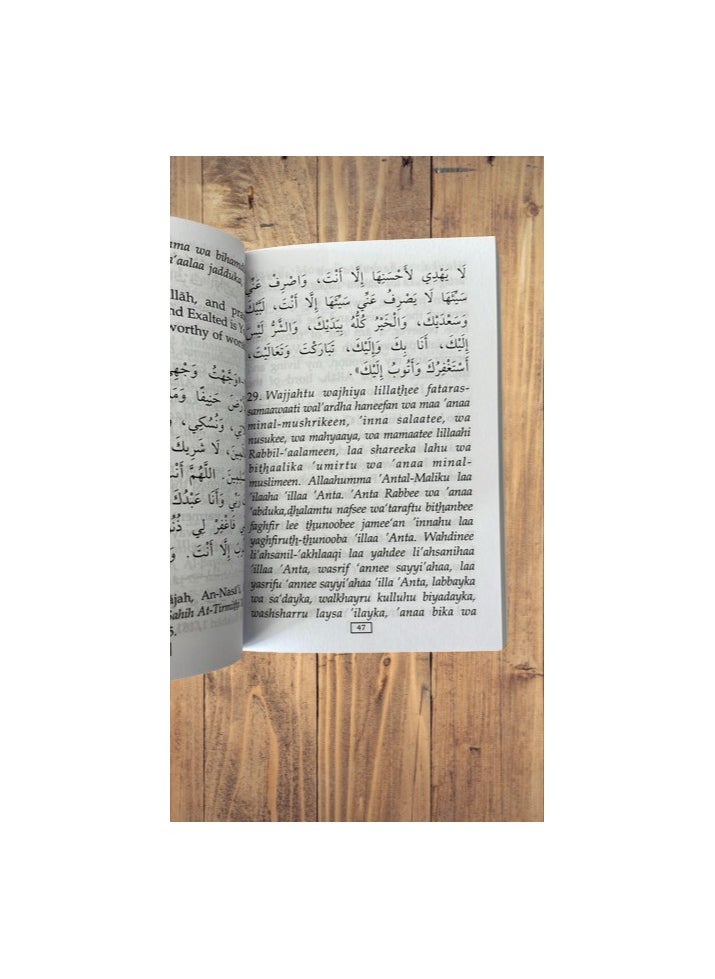 ama wa bihamd
a'aalaa jadduka,
llāh, and pra
nd Exalted is Yo
worthy of wors
«وَجَّهْتُ وَجْهِيَ
حَنِيفًا وَمَا
وَنُسُكِي،
لَا شَرِيكَ
اللَّهُمَّ أَنْتَ
رَبِّي وَأَنَا عَبْدُكَ
فَاغْفِرْ لِي
إِلَّا أَنْتَ.
ājah, An-Nasā'i,
Sahih At-Tirmithi
لَا يَهْدِي لِأَحْسَنِهَا إِلَّا أَنْتَ، وَاصْرِفْ عَنِّي
سَيِّئَهَا لَا يَصْرِفُ عَنِّي سَيِّئَهَا إِلَّا أَنْتَ، لَبَّيْكَ
وَسَعْدَيْكَ، وَالْخَيْرُ كُلُّهُ بِيَدَيْكَ، وَالشَّرُّ لَيْسَ
إِلَيْكَ، أَنَا بِكَ وَإِلَيْكَ، تَبَارَكْتَ وَتَعَالَيْتَ،
أَسْتَغْفِرُكَ وَأَتُوبُ إِلَيْكَ».
29. Wajjahtu wajhiya lillathee fataras-
samaawaati wal'ardha haneefan wa maa 'anaa
minal-mushrikeen, 'inna salaatee, wa
nusukee, wa mahyaaya, wa mamaatee lillaahi
Rabbil-'aalameen, laa shareeka lahu wa
bithaalika 'umirtu wa 'anaa minal-
muslimeen. Allaahumma 'Antal-Maliku laa
'ilaaha 'illaa 'Anta. 'Anta Rabbee wa 'anaa
'abduka,dhalamtu nafsee wa'taraftu bithanbee
faghfir lee thunoobee jamee'an 'innahu laa
yaghfiruth-thunooba 'illaa 'Anta. Wahdinee
li'ahsanil-'akhlaaqi laa yahdee li'ahsanihaa
'illaa 'Anta, wasrif 'annee sayyi'ahaa, laa
yasrifu 'annee sayyi'ahaa 'illa 'Anta, labbayka
wa sa'dayka, walkhayru kulluhu biyadayka,
washsharru laysa 'ilayka, 'anaa bika wa
47